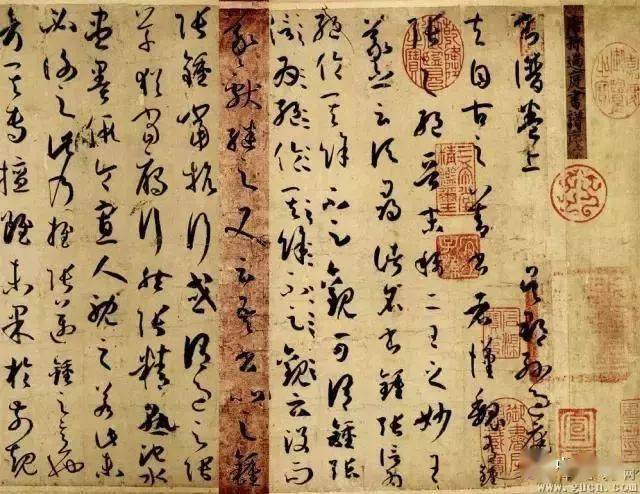 唐孫過庭書譜
書譜卷上 吳郡孫過庭
夫自古之善書者漢魏有鍾
張之絕晉末稱二王之妙王
羲之云頃尋諸名書鍾張信為
絕倫其餘不足觀可謂鍾張
信為絕倫其餘不足觀云沒而
羲獻繼之又云吾書比之鍾
張鍾當抗行或謂過之張
草猶當雁行然張精熟池水
盡墨假令寡人耽之若此未
必謝之此乃推張邁鍾之意也
考其專擅雖未果於前規
www.gucn.com